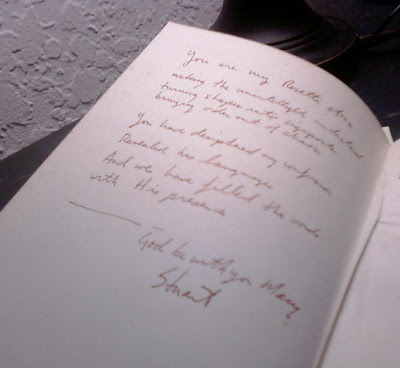 You are my Rosetta stone
making the unintelligible understood
turning shapes into
bringing order out of chaos
You have deciphered my confusion
Revealed his language
And we have filled the void
with His presence
God be with you Mary
Stuart